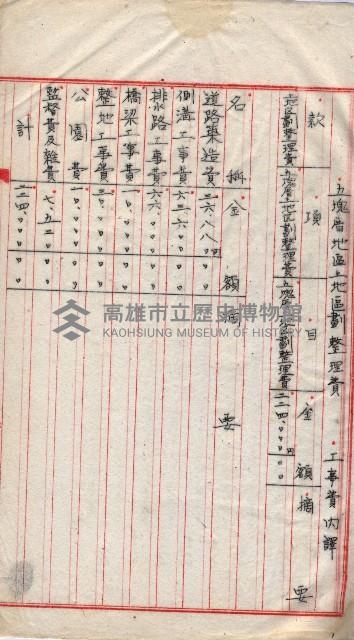 五塊厝地區土地區劃整理費 工事費內譯
款 項 目 金額 摘要
土地區劃整理費 五塊厝土地區劃整理費 五塊厝地區劃整理費 二二四〇〇〇円〇〇
名稱 金額 摘要
道路築造費 三六、八八〇円〇〇
側溝工事費 六二、六〇〇〇〇
排路工事費 六六、〇〇〇〇〇
橋梁工事費 一
整地工事費 三
公園費 一
監督費及雜費 七、五二〇〇〇
計 二二四、〇〇〇〇〇
高雄市立歷史博物館
KAOHSIUNG MUSEUM OF HISTORY